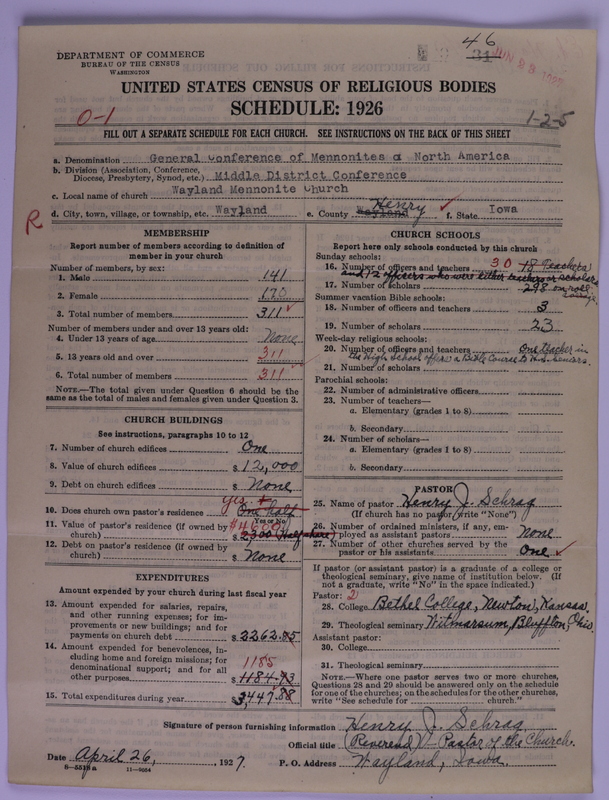 46
31
JUN 28 1927
DEPARTMENT OF COMMERCE
BUREAU OF THE CENSUS
WASHINGTON
UNITED STATES CENSUS OF RELIGIOUS BODIES
SCHEDULE: 1926
0-1
1-2-5
FILL OUT A SEPARATE SCHEDULE FOR EACH CHURCH. SEE INSTRUCTIONS ON THE BACK OF THIS SHEET
a. Denomination General Conference of Mennonites of North America
b. Division (Association, Conference,
Diocese, Presbytery, Synod, etc.) Middle District Conference
c. Local name of church Wayland Mennonite Church
R
d. City, town, village, or township, etc. Wayland e. County Wayland Henry f. State Iowa
MEMBERSHIP
Report number of members according to definition of
member in your church
Number of members by sex:
1. Male 141
2. Female 170
3. Total number of members 311
Number of members under and over 13 years old:
4. Under 13 years of age None
5. 13 years old and over 311
6. Total number of members 311
NOTE.—The total given under Question 6 should be the
same as the total of males and females given under Question 3.
CHURCH BUILDINGS
See instructions, paragraphs 10 to 12
7. Number of church edifices One
8. Value of church edifices $ 12,000
9. Debt on church edifices $ None
yes +
10. Does church own pastor's residence One half
(Yes or No)
11. Value of pastor's residence (if owned by $4600
church) $ 2300 (Half share)
12. Debt on pastor's residence (if owned by
church) $ None
EXPENDITURES
Amount expended by your church during last fiscal year
13. Amount expended for salaries, repairs,
and other running expenses; for im-
provements or new buildings; and for
payments on church debt $ 2262.85
14. Amount expended for benevolences, in-
cluding home and foreign missions; for
denominational support; and for all 1185
other purposes $ 1184.93
15. Total expenditures during year $ 3447.88
CHURCH SCHOOLS
Report here only schools conducted by this church
Sunday schools:
16. Number of officers and teachers 30 18 Teachers
and 12 officers who were either teachers or scholars
17. Number of scholars 298 on roll
Summer vacation Bible schools:
18. Number of officers and teachers 3
19. Number of scholars 23
Week-day religious schools:
20. Number of officers and teachers One teacher in
the High School offers a Bible Course to H.S. Seniors.
21. Number of scholars
Parochial schools:
22. Number of administrative officers
23. Number of teachers—
a. Elementary (grades 1 to 8)
b. Secondary
24. Number of scholars—
a. Elementary (grades 1 to 8)
b. Secondary $
PASTOR
25. Name of pastor Henry J. Schrag
(If church has no pastor, write "None")
26. Number of ordained ministers, if any, em-
ployed as assistant pastors none
27. Number of other churches served by the
pastor or his assistants One
If pastor (or assistant pastor) is a graduate of a college or
theological seminary, give name of institution below. (If
not a graduate, write "No" in the space indicated.)
Pastor: 2
28. College Bethel College, Newton, Kansas.
29. Theological seminary Witmarsum, Bluffton, Ohio.
Assistant pastor:
30. College
31. Theological seminary
NOTE.—Where one pastor serves two or more churches,
Questions 28 and 29 should be answered only on the schedule
for one of the churches; on the schedules for the other churches,
write "See schedule for church."
Signature of person furnishing information Henry J. Schrag
Official title (Reverend) - Pastor of the Church.
Date April 26, 1927. P. O. Address Wayland, Iowa.
8-5518a 11-9084